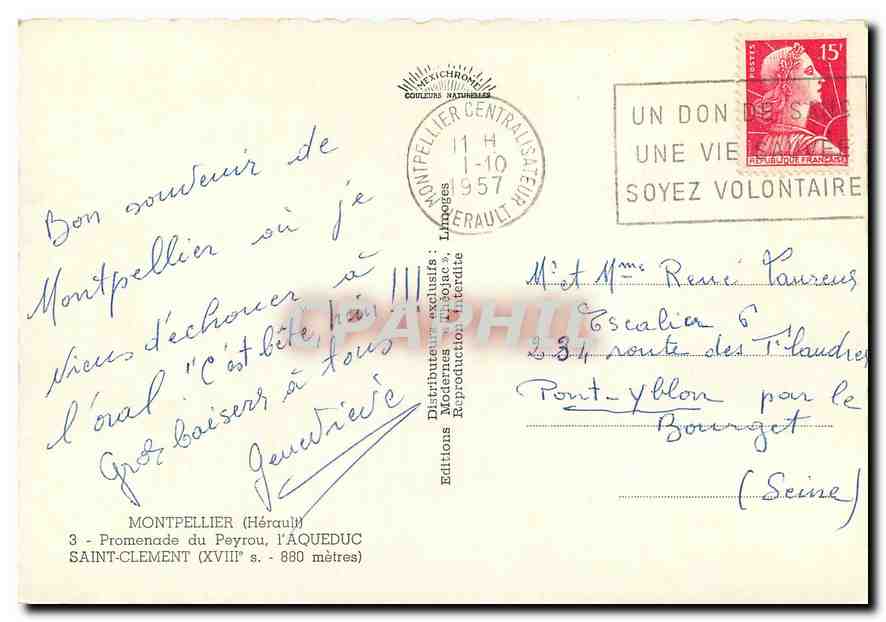 MEXICHROME
COULEURS NATURELLES
MONTPELLIER CENTRALISATEUR
11 H
1-10
1957
HERAULT
POSTES
15F
REPUBLIQUE FRANÇAISE
UN DON DE
UNE VIE
SOYEZ VOLONTAIRE
Bon souvenir de
Montpellier où je
viens d'échouer à
l'oral "C'est bête, hein !!!
Gros baisers à tous
Geneviève
MONTPELLIER (Hérault)
3 - Promenade du Peyrou, l'AQUEDUC
SAINT-CLEMENT (XVIIIe s. - 880 mètres)
Distributeurs exclusifs :
Editions Modernes « Théojac », Limoges
Reproduction interdite
Mr et Mme René
Escalier 6
234 route des Flandres
Pont-Yblon par le
Bourget
(Seine)
CPAPHIL